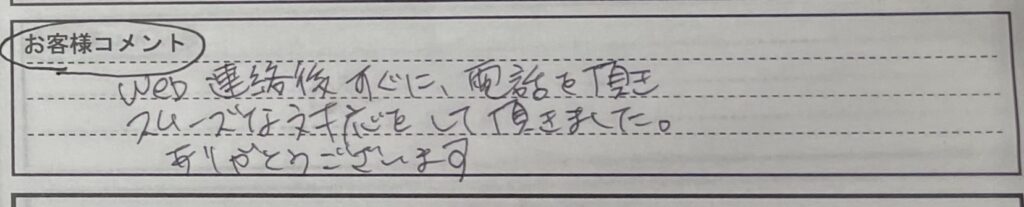 お客様コメント
Web 連絡後すぐに、電話を頂き
スムーズな対応をして頂きました。
ありがとうございます